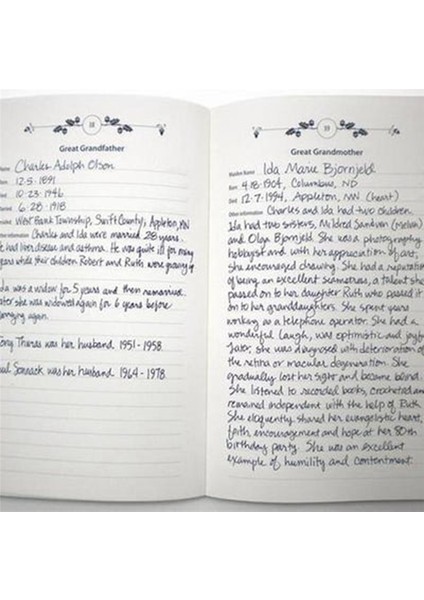 18
Great Grandfather
Name Charles Adolph Olson
Born 12-5-1891
Died 10-23-1946
Married 6-28-1918
Resided West Bank Township, Swift County, Appleton, MN
Other information Charles and Ida were married 28 years.
He had liver disease and asthma. He was quite ill for many
years while their children Robert and Ruth were growing up
Ida was a widow for 5 years and then remarried.
Later she was widowed again for 6 years before
marrying again.
Tony Thuras was her husband 1951-1958.
Paul was her husband 1964-1978.
19
Great Grandmother
Maiden Name Ida Marie Bjornjeld
Born 4-18-1904, Columbus, ND
Died 12-7-1994, Appleton, MN (heart)
Other information Charles and Ida had two children.
Ida had two sisters, Mildred Sandven (Melvin)
and Olga Bjornjeld. She was a photography
hobbyist and with her appreciation of art,
she encouraged drawing. She had a reputation
of being an excellent seamstress, a talent she
passed on to her daughter Ruth who passed it
on to her granddaughters. She spent years
working as a telephone operator. She had a
wonderful laugh, was optimistic and joyful.
Later, she was diagnosed with deterioration of
the retina or macular degeneration. She
gradually lost her sight and became blind.
She listened to recorded books, crocheted and
remained independent with the help of Ruth.
She eloquently shared her evangelistic heart,
faith encouragement and hope at her 80th
birthday party. She was an excellent
example of humility and contentment.